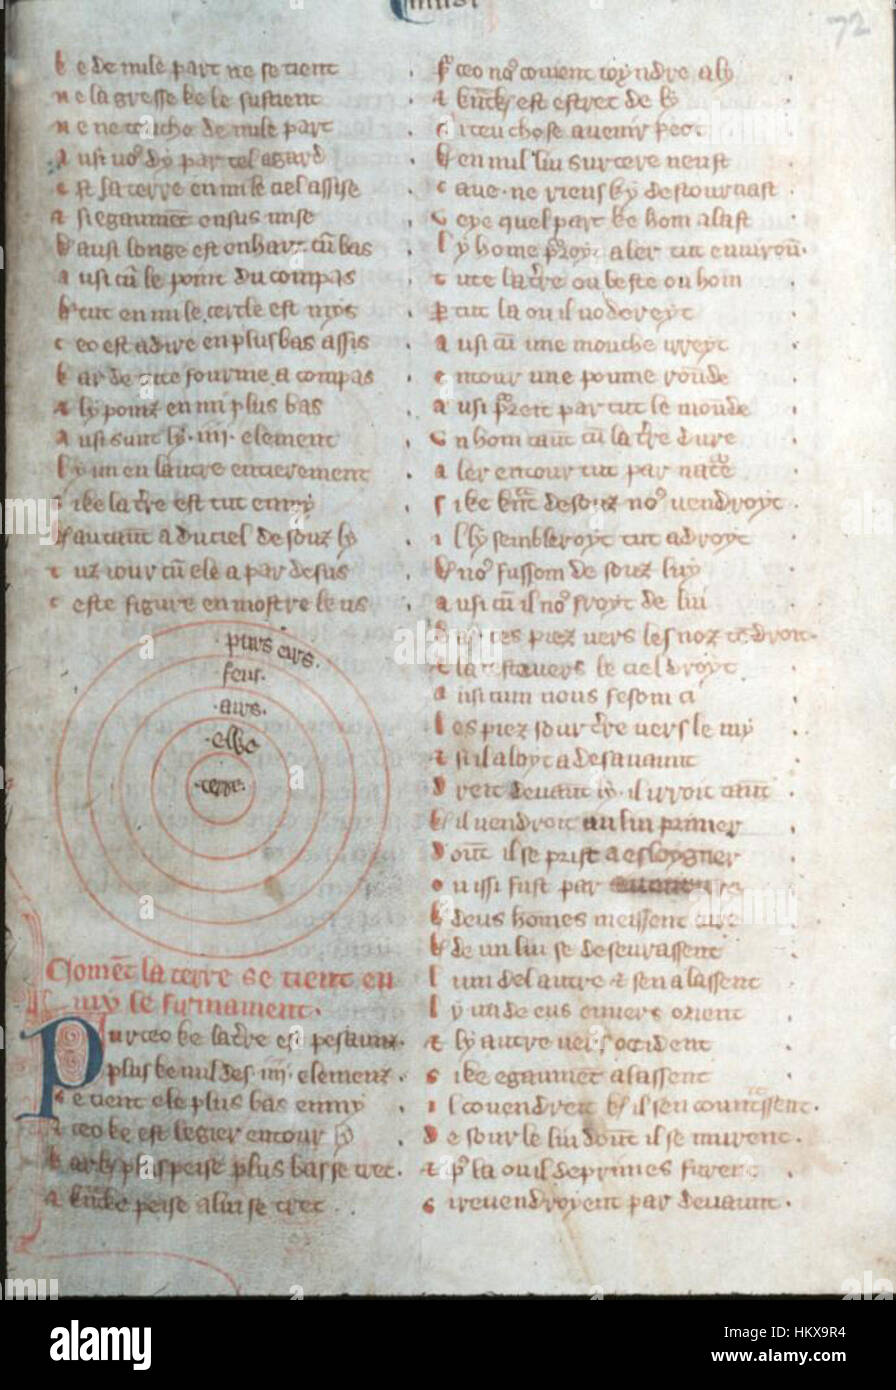 72
ke de nule part ne se tient
ne la gresse ke le sustient
ne ne touche de nule part
ausi no⁹ dy par tel agard
est la terre en mi le ciel assise
si egaumēt ensus mise
kausi longe est on haut cū bas
ausi cū le point du compas
ke tut en mi le cercle est mys
ceo est a dire en plus bas assis
kar de tute fourme a compas
a ly poinz en mi plus bas
ausi sunt ly .iiij. element
ly un en lautre entierement
si ke la t're est tut enmy
kautaūt a du ciel de souz ly
tuz iour cū ele a par desus
ceste figure en mostre le us
purs cirs.
feus.
airs.
eße
terre.
Comēt la terre se tient en
my le firmament.
Pur ceo ke la t're est pesaunz.
plus ke nul des .iiij. elemenz.
se tient ele plus bas enmy
ceo ke est legier entour ly
kar ky plus peise plus bas se tret.
a kūke peise a lui se tret
p' ceo no⁹ covient ioyndre a ly
kūcke est estret de ly
si teu chose avenir peot
ken nul liu sur tere neust
eaue . ne riens ky destournast .
queu quel part ke hom alast
ly home p'roit aler tut enuiroū.
tute la t're ou beste ou hom
par tut la ou il voderoyt
ausi cū une mouche irreyt
entour une poume roūde
ausi p'reit par tut le moūde
un hom taūt cū la t're dure
aler entour tut par nature
si ke kāt desouz no⁹ vendroyt .
il ly sembleroyt tut a droyt
ke no⁹ fussom de souz luy
ausi cū il no⁹ froyt de lui
piez vers les noz droit.
la teste vers le ciel droyt
ausi cum nous fesom ci
les piez sour t're vers le my
si il aloyt adesavaunt
dreit devant ly . il iroit taūt
ke il vendroit au liu primer
dont il se prist a esloygner
ou issi fust par
ke deus homes meissent
ke de un liu se deseurassent
lun del autre sen alassent
ly un de eus envers orient
ly autre vers occident
si ke egaumēt alassent
il covendreit kil sen countassent.
de sour le liu dout il se murent .
p' la ou il deprimes furent
si revendroyent par devaunt .
alamy stock photo
HKX9R4
www.alamy.com